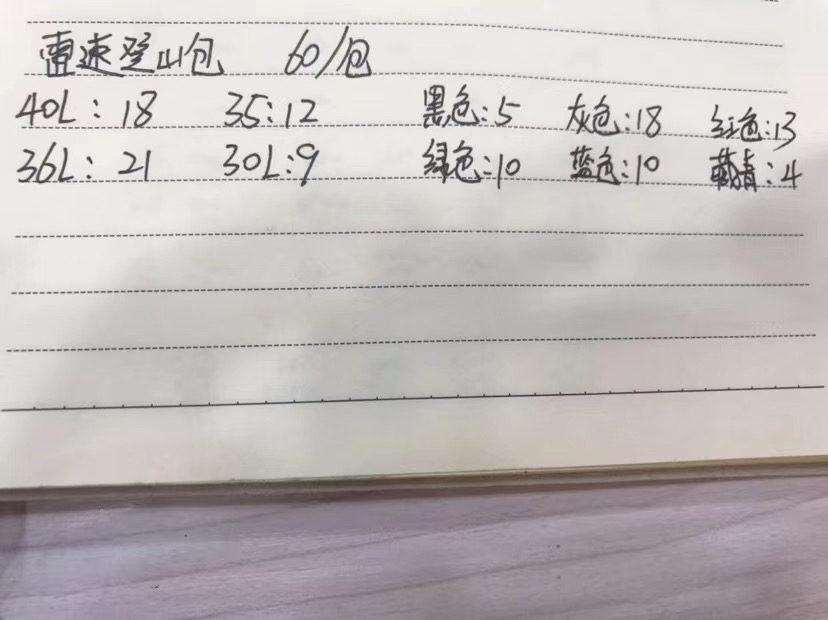 雷速登山包 60/包
40L：18 35：12 黑色：5 灰色：18 红色：13
36L：21 30L：9 绿色：10 蓝色：10 藏青：4